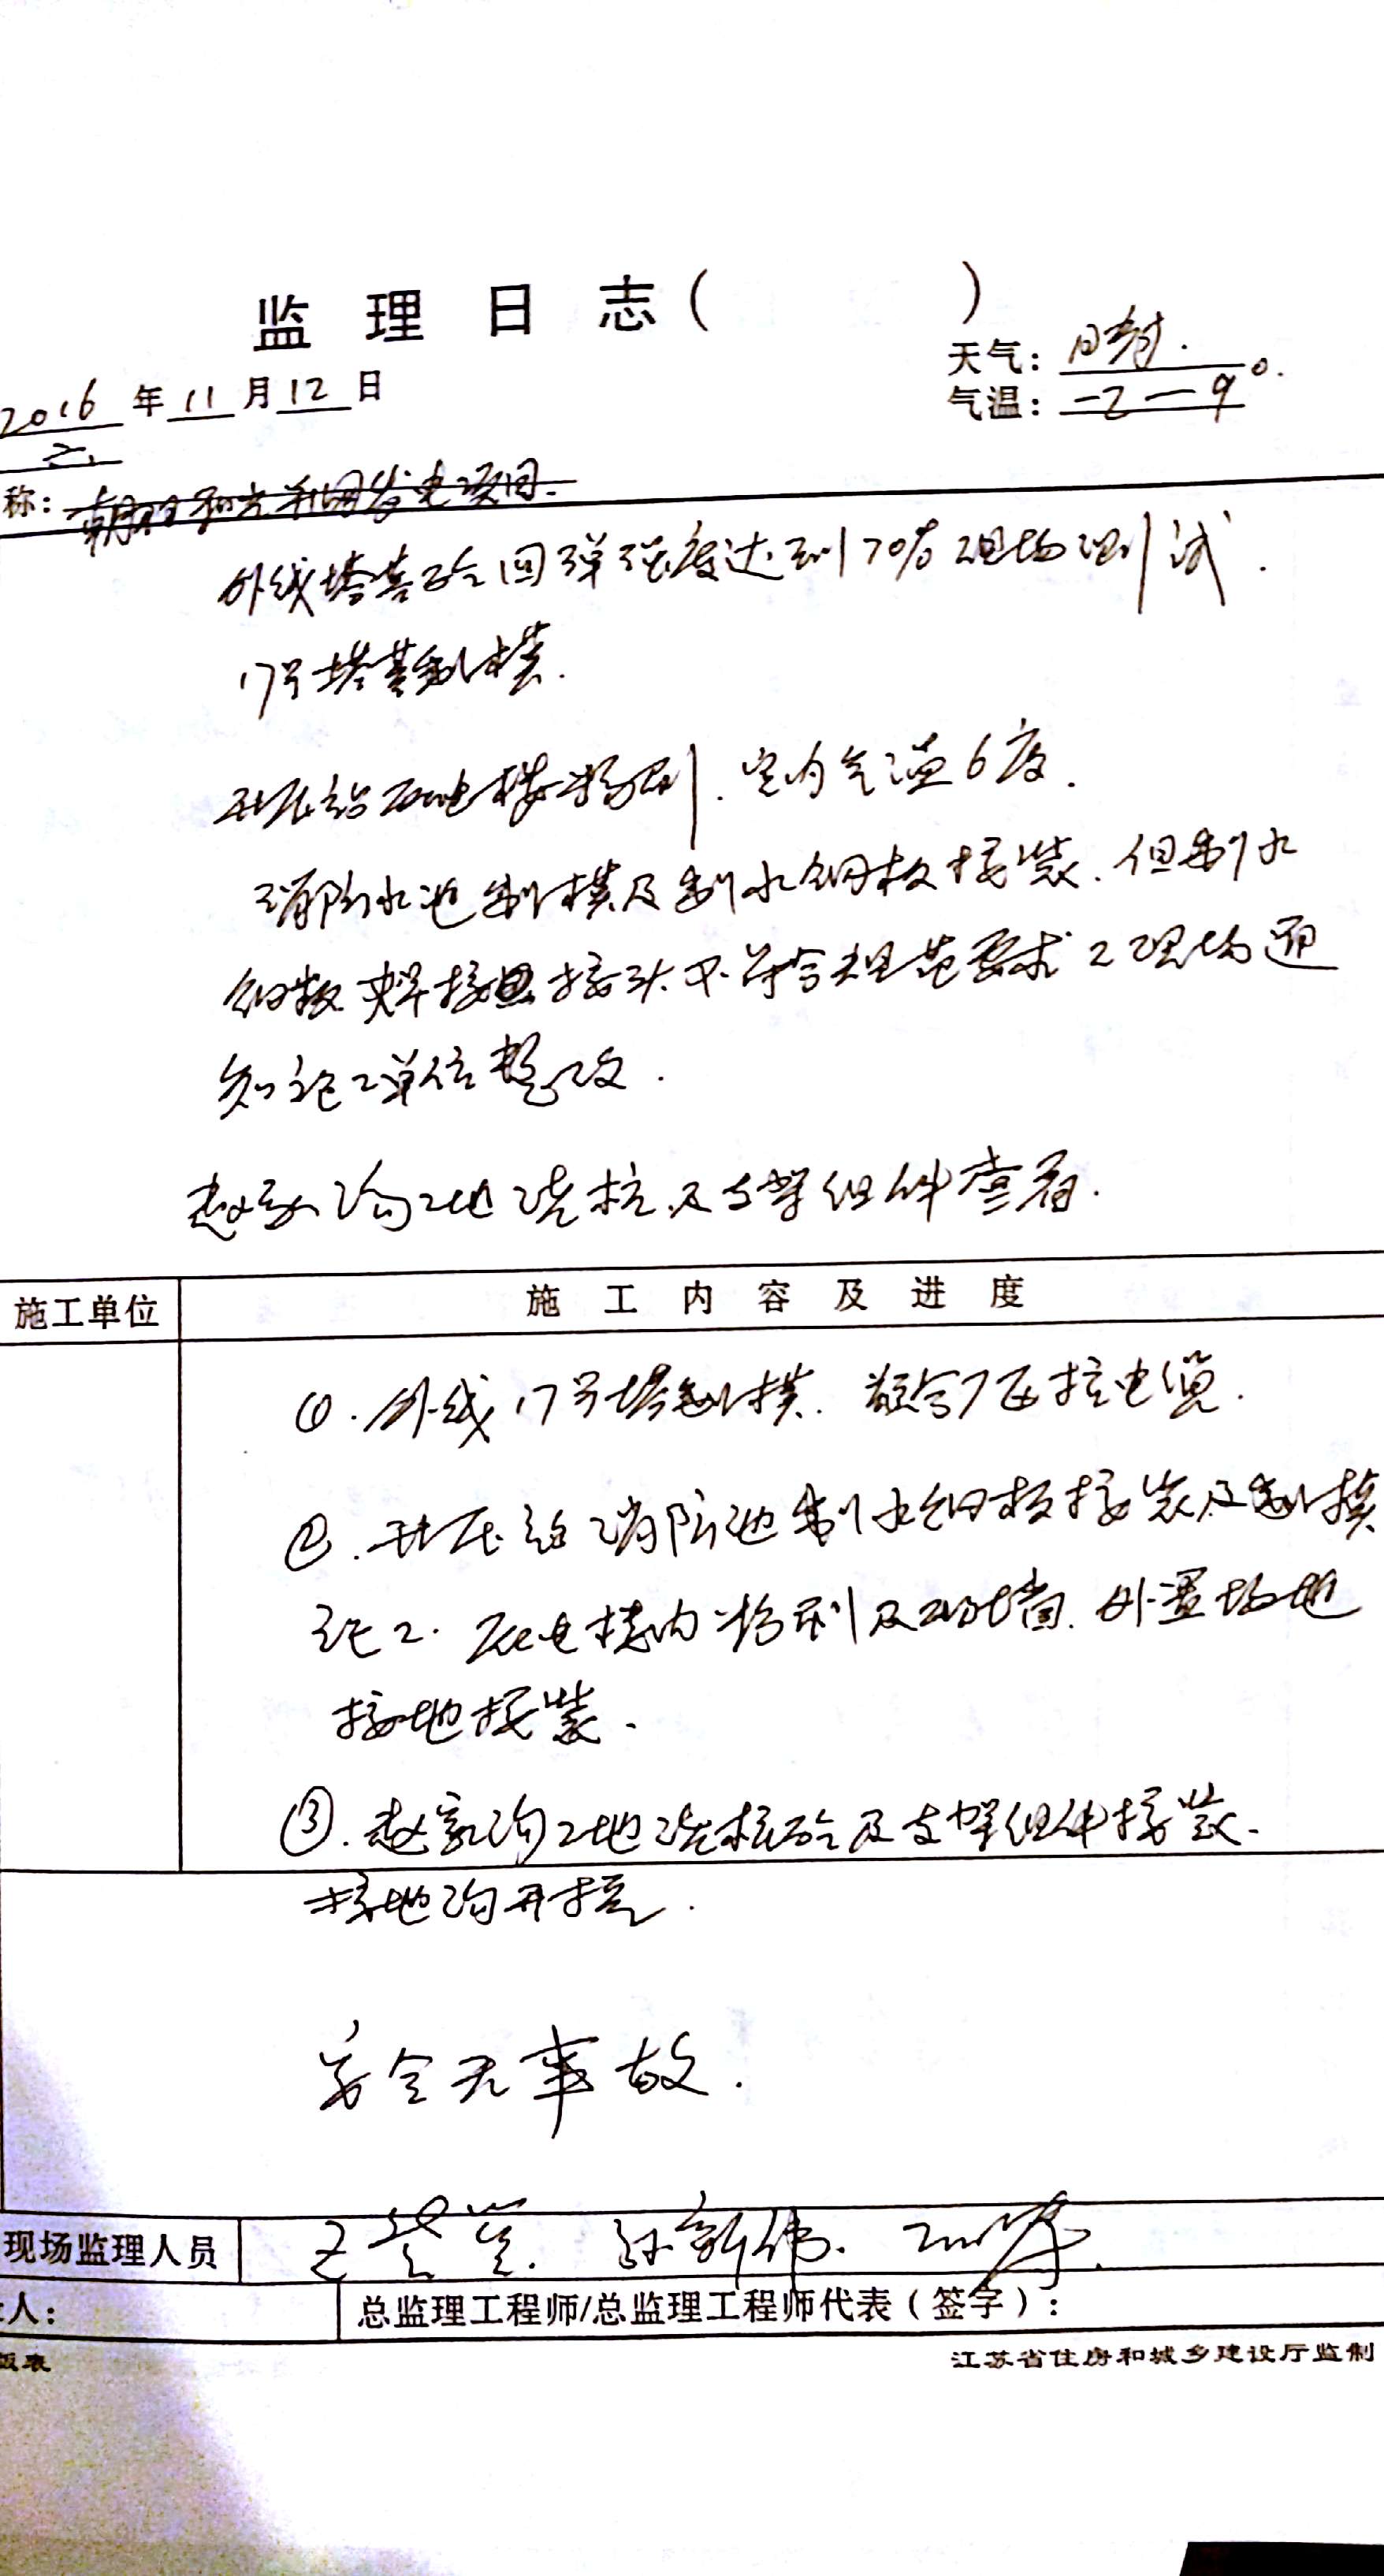 监理日志( )
天气: 晴.
2016年11月12日
气温: -2-9°.
称:
外线塔基砼回弹强度达到70%现场测试.
17号塔基制模.
升压站配电楼粉刷.室内气温6度.
消防水池制模及制水钢板接装.但制水
钢板焊接 接头不符合规范要求 现场通
知施工单位整改.
赵家沟工地浇桩及支架组件查看.
施工单位
施工内容及进度
①.外线17号塔制模. 电缆.
②.升压站消防池制水钢板接装及制模
施工.配电楼内粉刷及砌墙. 场地
接地接装.
③.赵家沟工地浇桩砼及支架组件接装.
接地沟开挖.
安全无事故.
现场监理人员
孙新伟.
人:
总监理工程师/总监理工程师代表(签字):
版表
江苏省住房和城乡建设厅监制